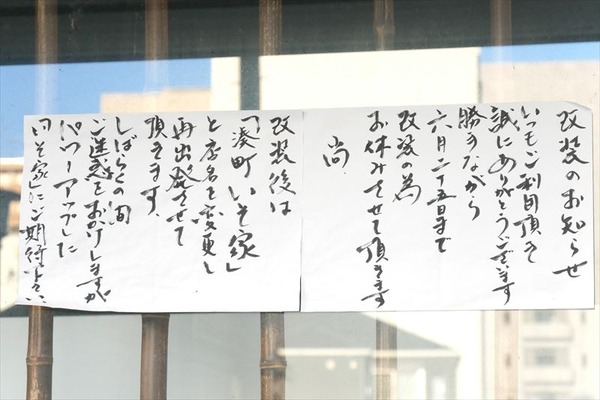 改装のお知らせ
いつもご利用頂き
誠にありがとうございます
勝手ながら
六月二十五日まで
改装の為
お休みさせて頂きます
尚
改装後は
「湊町いそ家」
と店名を変更し
再出発させて
頂きます。
しばらくの間
ご迷惑をおかけしますが
パワーアップした
いそ家にご期待下さい